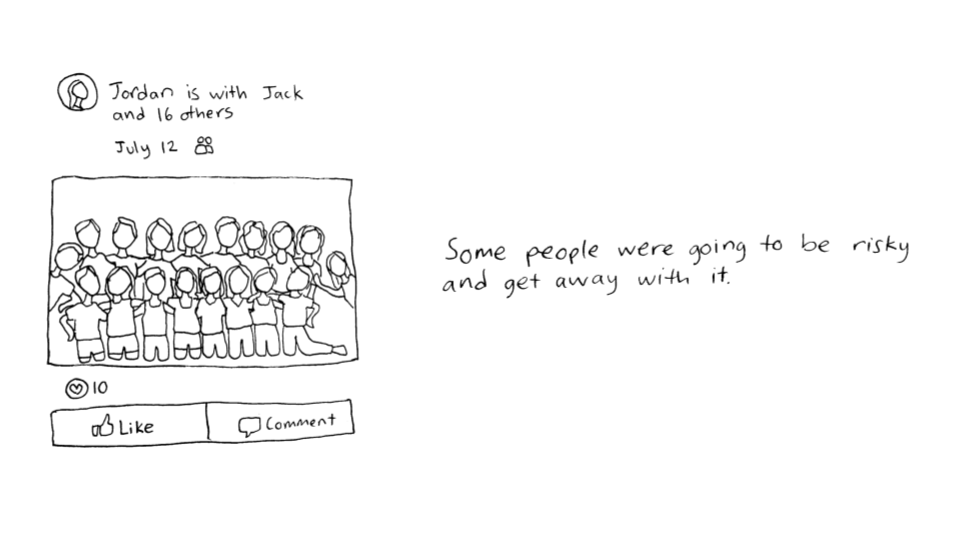 Jordan is with Jack
and 16 others
July 12
10
Like
Comment
Some people were going to be risky
and get away with it.